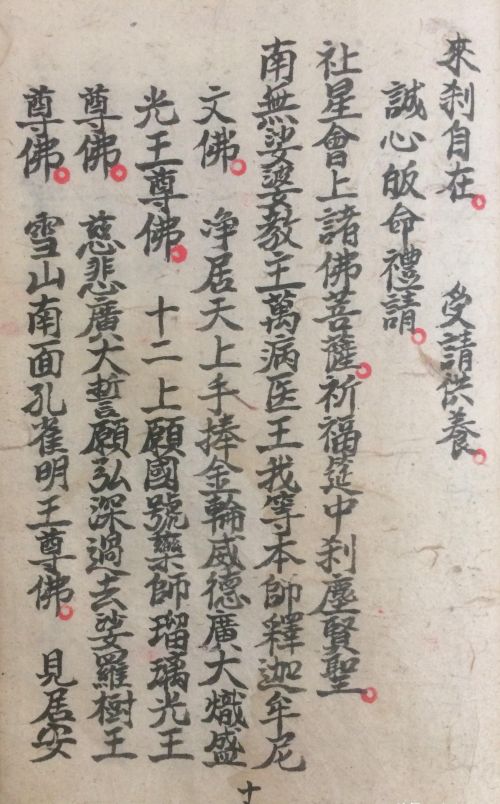 來刹自在。 受請供養。
誠心皈命禮請。
社星會上諸佛菩薩。祈福筵中刹塵賢聖。
南無娑婆教主萬病医王我等本師釋迦牟尼
文佛。 净居天上手捧金輪威德廣大熾盛
光王尊佛。 十二上願國號藥師瑠璃光王
尊佛。 慈悲廣大誓願弘深過去娑羅樹王
尊佛。 雪山南面孔雀明王尊佛。 見居安
十